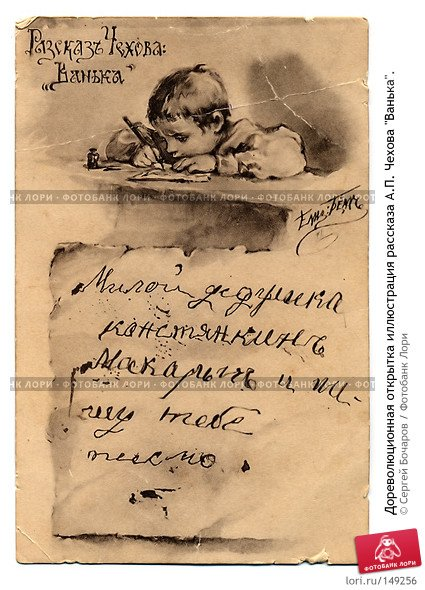 Разсказъ Чехова:
„Ванька"
Елис: Бёмъ
Милой дедушка
канстянкинъ
Макарычъ и пи-
шу тебе
письмо
ФОТОБАНК ЛОРИ · ФОТОБАНК ЛОРИ · ФОТОБАНК ЛОРИ
ФОТОБАНК ЛОРИ · ФОТОБАНК ЛОРИ · ФОТОБАНК ЛОРИ
Дореволюционная открытка иллюстрация рассказа А.П. Чехова "Ванька".
© Сергей Бочаров / Фотобанк Лори
ФОТОБАНК ЛОРИ
lori.ru/149256